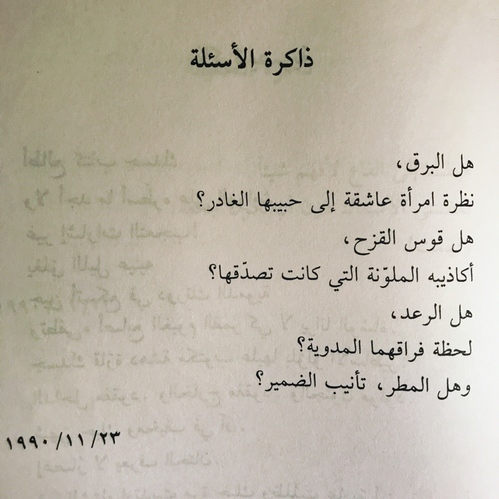 ذاكرة الأسئلة
هل البرق،
نظرة امرأة عاشقة إلى حبيبها الغادر؟
هل قوس القزح،
أكاذيبه الملوّنة التي كانت تصدّقها؟
هل الرعد،
لحظة فراقهما المدوية؟
وهل المطر، تأنيب الضمير؟
١٩٩٠/١١/٢٣